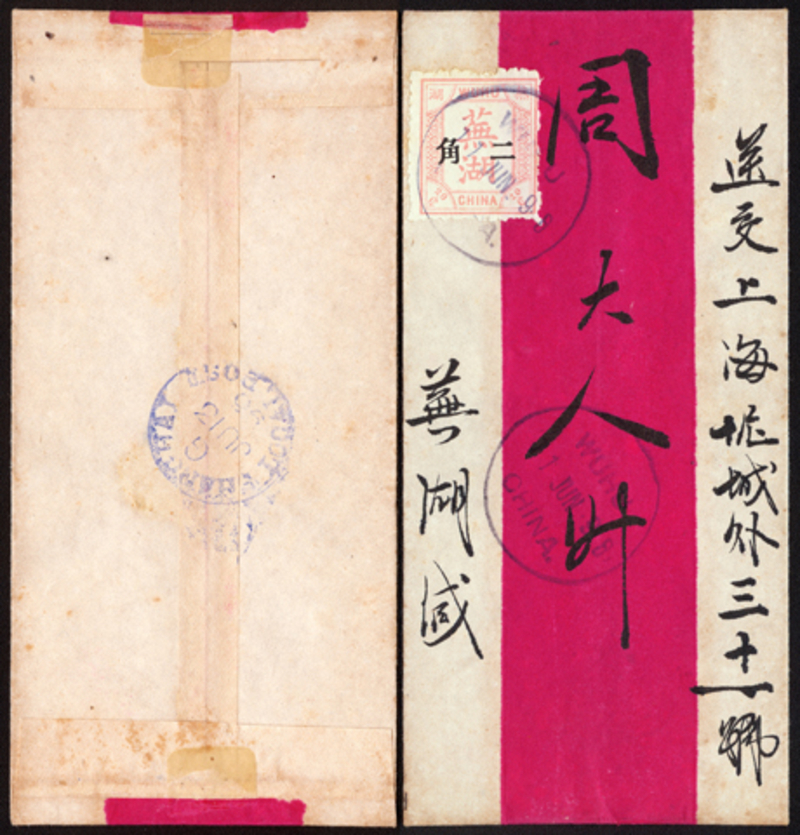 送交上海坭城外三十一號
周大人升
蕪湖緘
WUHU
蕪湖
二角
CHINA
WUHU
1 JUN 98
CHINA.
LOCAL POST